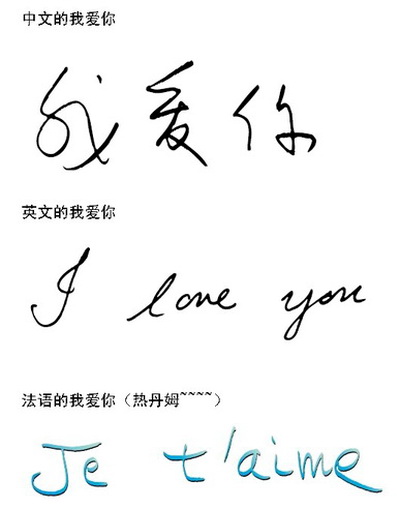 中文的我爱你
我爱你
英文的我爱你
I love you
法语的我爱你（热丹姆~~~~）
Je t'aime